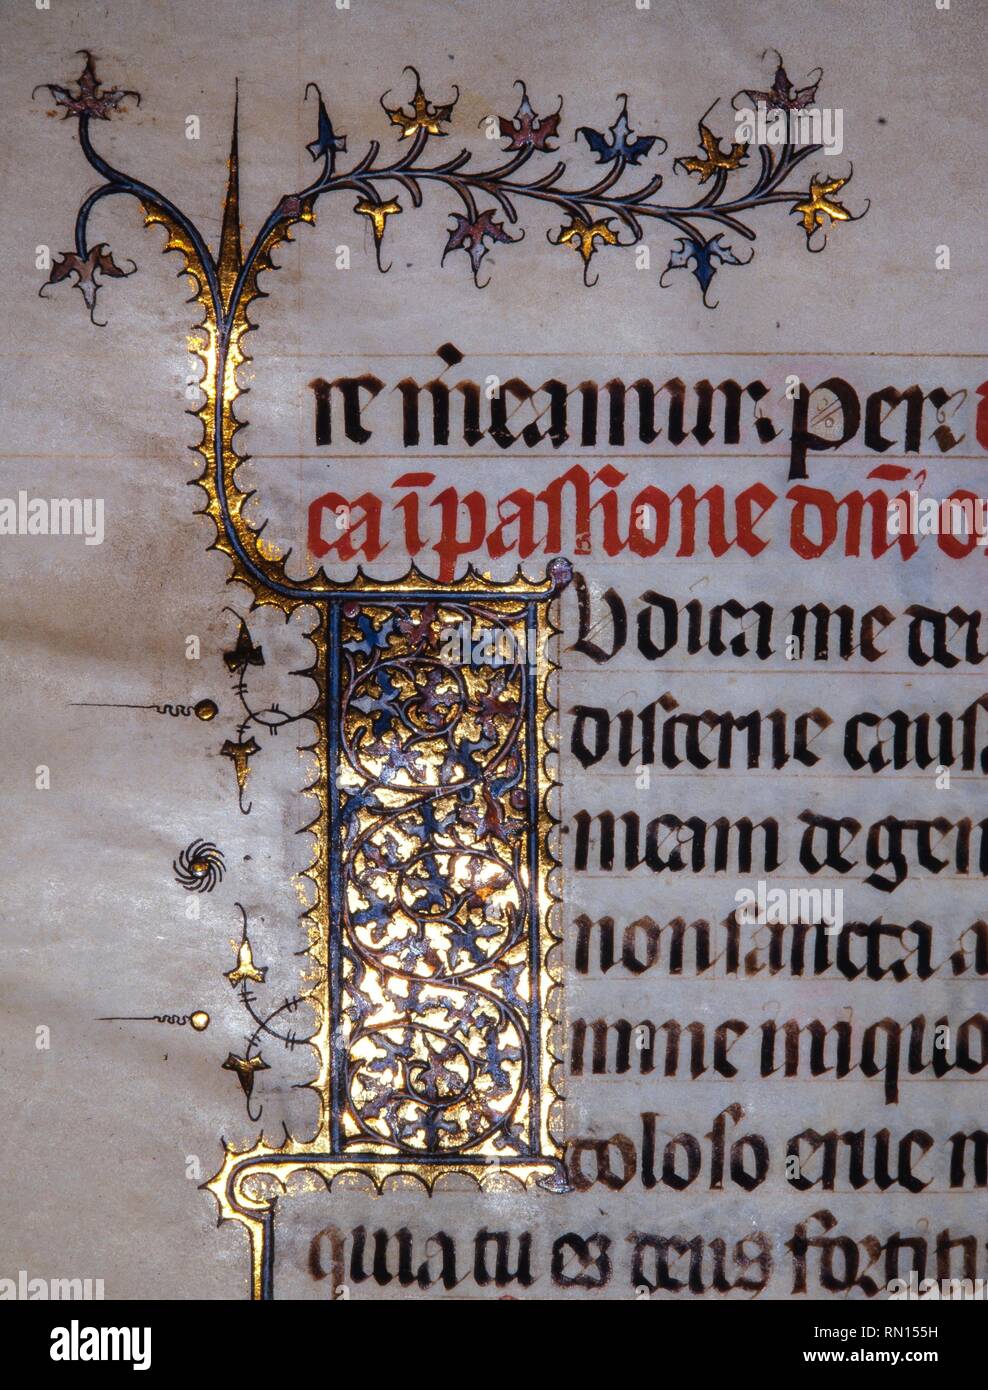 re m̄eamur. per. d
ca ī passione dñi o
I Vdica me deu
discerne causa
meam de gen
non sancta a
mine iniquo
toloso erue m
quia tu es deus fortitu
alamy
Image ID: RN155H
www.alamy.com